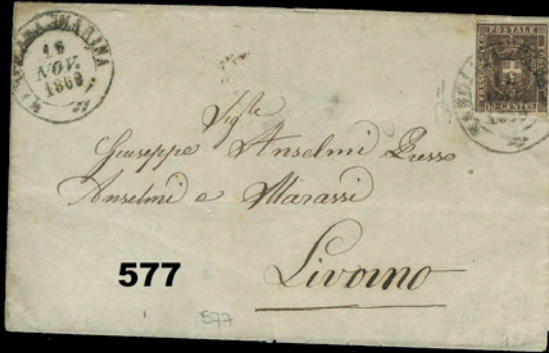 16
NOV.
186
FRANCOBOLLO
POSTALE
10 CENTES
Sigle
Giuseppe Anselmi Presso
Anselmi e Marassi
Livorno
577
577